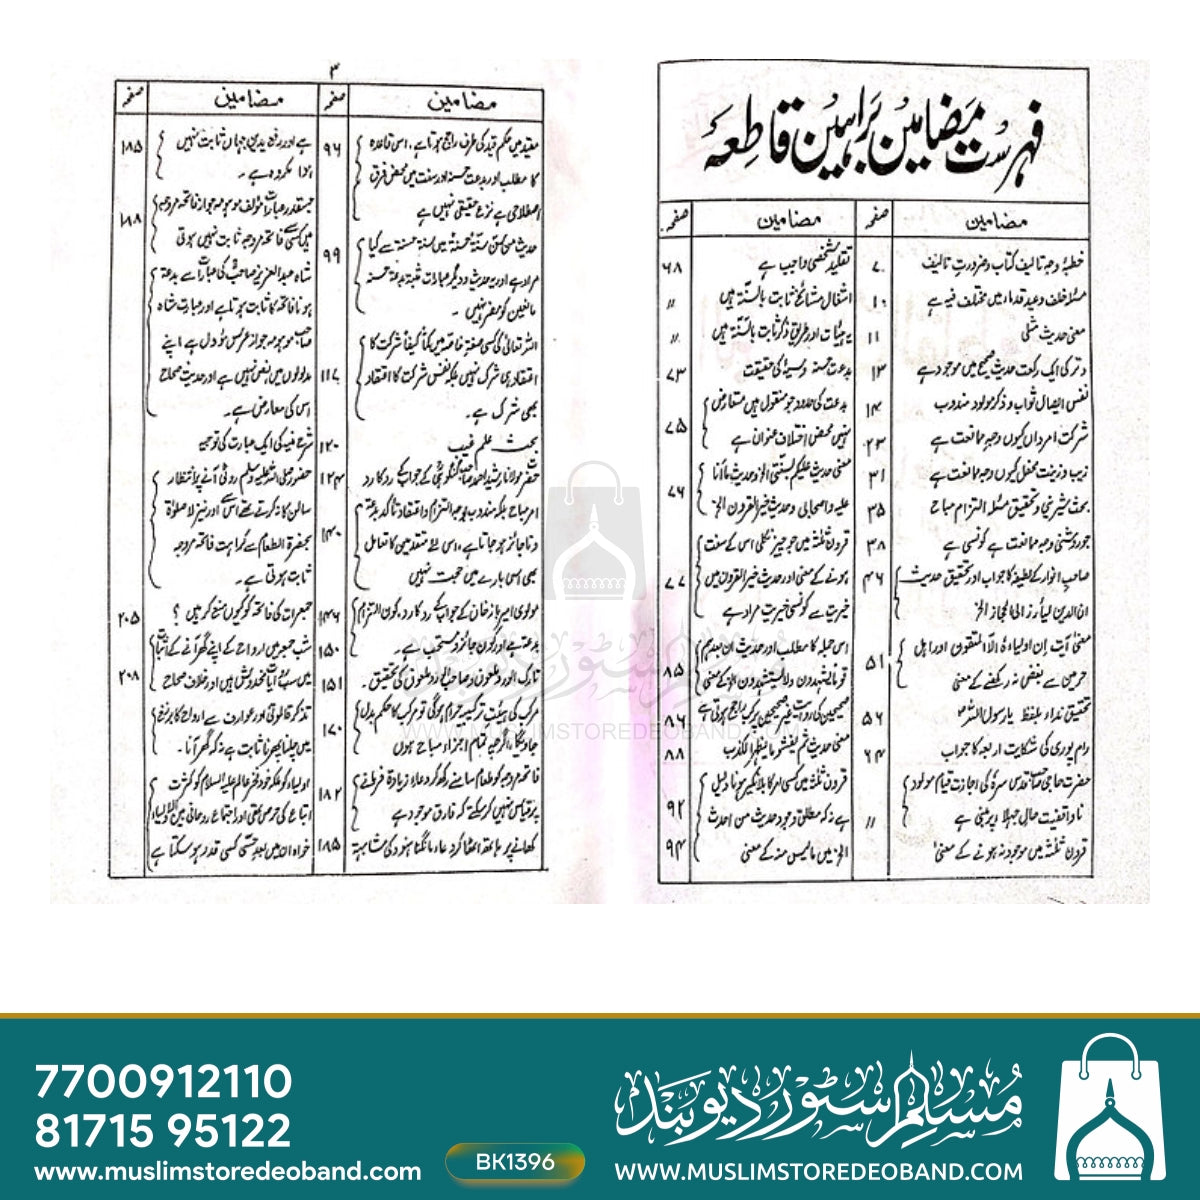 فہرست مضامین براہین قاطعہ
مضامین
صفحہ
مضامین
صفحہ
خطبۂ وجہ تالیف کتاب وضرورت تالیف
۷
مسئلہ خلف وعید قدماء میں مختلف فیہ ہے
۱۰
معنی حدیث مثلی
۱۱
وتر کی ایک رکعت حدیث صحیح میں موجود ہے
۱۳
نفس ایصال ثواب و ذکر مولود مندوب
۱۴
شرکت امردان کیوں وجہ ممانعت ہے
۲۳
زیب و زینت محفل کیوں وجہ ممانعت ہے
۳۱
بحث شیرینی و تحقیق مسئلہ التزام مباح
۳۵
جو روشنی وجہ ممانعت ہے کونسی ہے
۳۸
صاحب انوار کے لطیفہ کا جواب اور تحقیق حدیث
ان الدین لیأرز الی الحجاز الخ
۴۶
معنیٰ آیت ان اولیاءہ الا المتقون اور اہل
حرمین سے بغض نہ رکھنے کے معنی
۵۱
تحقیق نداء بلفظ یا رسول اللہ
۵۶
رام پوری کی شکایت اربعہ کا جواب
۶۴
حضرت حاجی صاحب قدس سرہٗ کی اجازت قیام مولود
ناواقفیت حال جہلا پر مبنی ہے
〃
قرون ثلثہ میں موجود نہ ہونے کے معنیٰ
تقلید شخصی واجب ہے
۶۸
اشغال مشائخ ثابت بالسنۃ ہیں
〃
یہ ہیئات اور طریق ذکر ثابت بالسنۃ ہیں
〃
بدعت حسنہ و سیئہ کی حقیقت
۷۳
بدعت کی حدود جو منقول ہیں متعارض
نہیں محض اختلاف عنوان ہے
۷۵
معنی حدیث علیکم بسنتی الخ وحدیث ما أنا
علیہ واصحابی وحدیث خیر القرون الخ
۷۶
قرون ثلثہ میں جو چیز نکلی اس کے سنت
ہونے کے معنی اور حدیث خیر القرون میں
خیریت سے کونسی خیریت مراد ہے
۷۷
اس جملہ کا مطلب اور حدیث ان بعدکم
قوما یشہدون ولا یستشہدون الخ کے معنی
۸۵
صحیحین کی روایت غیر صحیحین پر کب راجح ہوتی ہے
۸۶
معنی حدیث ثم یفشو ما یظہر الکذب
۸۸
قرون ثلثہ میں کسی امر کا بلا نکیر ہونا دلیل
ہے نہ کہ مطلق وجود حدیث من احدث
۹۲
الخ میں ما لیس منہ کے معنی
۹۴
۳
مضامین
صفحہ
مضامین
صفحہ
مقید میں حکم قید کی طرف راجع ہوتا ہے، اس قاعدہ
کا مطلب اور بدعت حسنہ اور سنت میں محض فرق
اصطلاحی ہے نزع حقیقی نہیں ہے
۹۶
حدیث من سن سنۃ حسنۃ میں سنۃ حسنۃ سے کیا
مراد ہے اور یہ حدیث و دیگر عبارات مثبتہ بدعۃ حسنہ
مانعین کو مضر نہیں۔
۹۹
اللہ تعالیٰ کی کسی صفۃ خاصہ میں کماً کیفاً شرکت کا
اعتقاد ہی شرک نہیں بلکہ نفس شرکت کا اعتقاد
بھی شرک ہے۔
۱۱۷
بحث علم غیب
۱۲۰
حضرت مولانا رشید احمد صاحب گنگوہی کے جواب کے رد کا رد
۱۲۴
امر مباح بلکہ مندوب بوجہ التزام و اعتقاد تاکد بدعۃ
و ناجائز ہو جاتا ہے، اس لئے متقدمین کا تعامل
بھی اسی بارے میں حجت نہیں
۱۴۰
مولوی امیر باز خان کے جواب کے رد کا رد، کون التزام
۱۴۶
بدعۃ ہے اور کون جائز و مستحب ہے۔
۱۵۰
تارک الورد ملعون و صاحب الورد ملعون کی تحقیق۔
۱۵۱
مرکب کی ہیئت ترکیبیہ حرام ہوگی تو مرکب کا حکم بدل
جاویگا، اگرچہ تمام اجزاء مباح ہوں
۱۷۰
فاتحہ مروجہ کو طعام سامنے رکھ کر دعاء زیادۃ فرمانے
پر قیاس نہیں کر سکتے کہ فارق موجود ہے
۱۸۲
کھانے پر ہاتھ اٹھا کر دعاء مانگنا ہنود کی مشابہۃ
۱۸۵
ہے اور رفع یدین جہاں ثابت نہیں
ہوا مکروہ ہے۔
۱۸۵
جسقدر عبارات مؤلف موہومہ جواز فاتحہ مروجہ
میں کسی سے فاتحہ مروجہ ثابت نہیں ہوتی
۱۸۸
شاہ عبد العزیز صاحب کی عبارات سے بدعۃ
ہونا فاتحہ کا ثابت ہوتا ہے اور عبارت شاہ
صاحب موہومہ جواز عرس مؤول ہے اپنے
مدلولوں میں نص نہیں ہے اور حدیث صحاح
اس کی معارض ہے۔
شرح منیہ کی ایک عبارت کی توجیہ
حضور صلی اللہ علیہ وسلم روٹی آنے پر انتظار
سالن کا نہ کرتے تھے اس سے اور نیز لا صلوٰۃ
بحضرۃ الطعام سے کراہت فاتحہ مروجہ
ثابت ہوتی ہے۔
جمعرات کی فاتحہ کو کیوں منع کرتے ہیں؟
۲۰۵
شب جمعہ میں ارواح کے اپنے گھر آنے کے اثبات
میں سب روایات مخدوش ہیں اور خلاف صحاح
۲۰۸
تذکر قالوتی اور عوارف سے ارواح کا برزخ
میں چلنا پھرنا ثابت ہے نہ کہ گھر آنا۔
اولیاء کو ملکہ خود فخر عالم علیہ السلام کو کثرت
اتباع کی حرص تھی اور اجتماع روحانی بین الاولیاء
خواہ ان میں بعد حسی کسی قدر ہو سکتا ہے
مسلم سٹور دیوبند
WWW.MUSLIMSTOREDEOBAND.COM
7700912110
81715 95122
www.muslimstoredeoband.com
BK1396
مسلم سٹور دیوبند
WWW.MUSLIMSTOREDEOBAND.COM